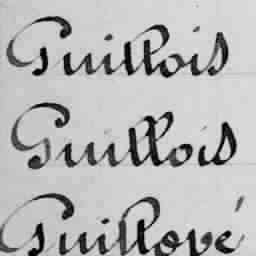 Guillois
Guillois
Guillopé